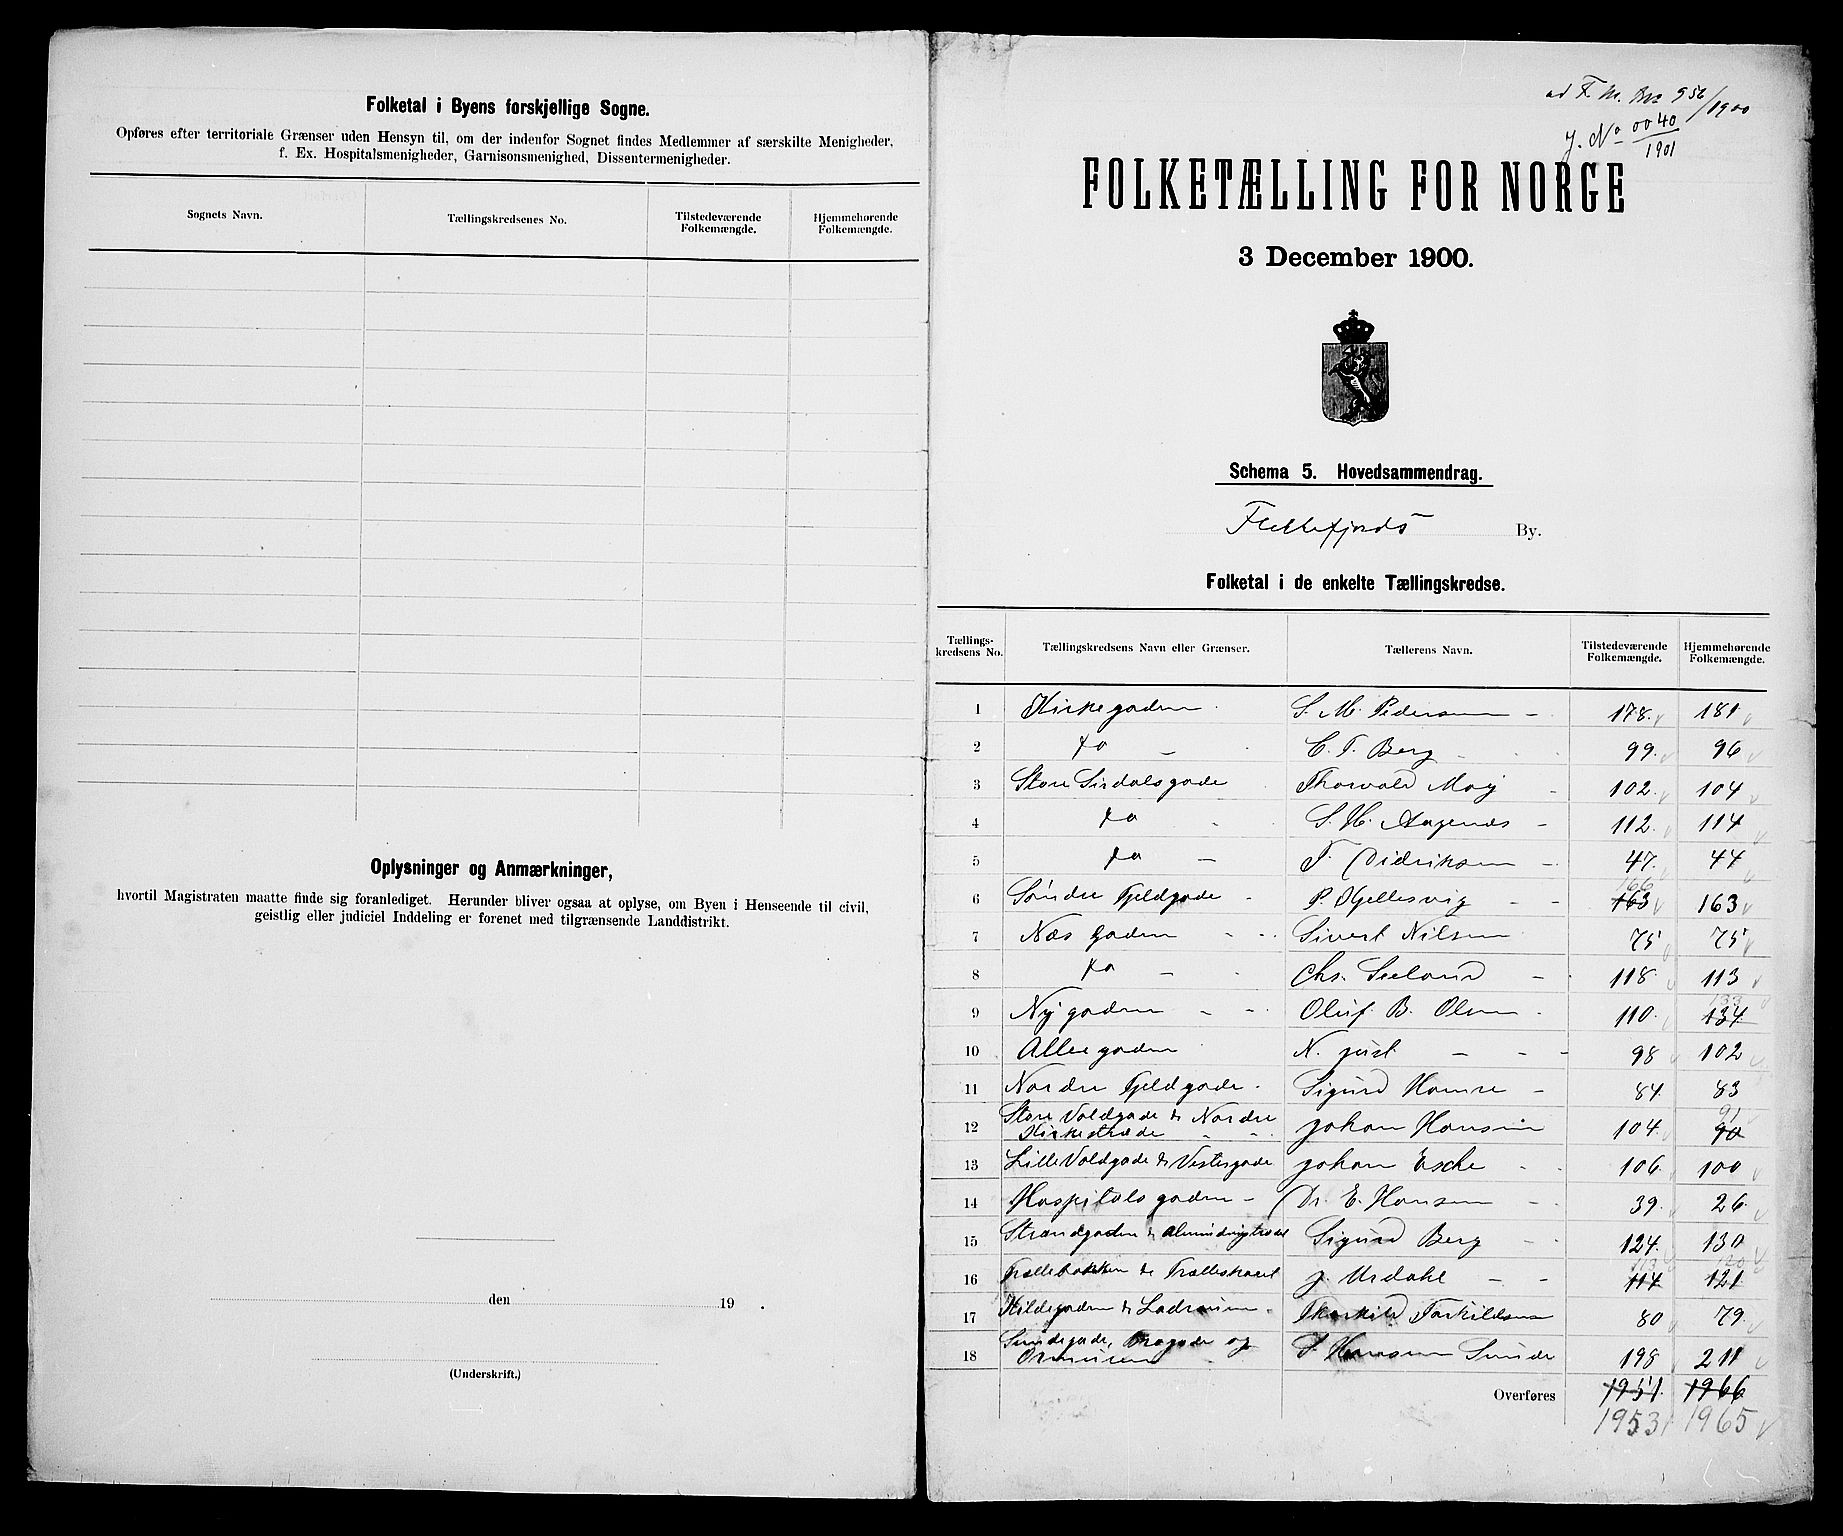 Folketal i Byens forskjellige Sogne.
Opføres efter territoriale Grænser uden Hensyn til, om der indenfor Sognet findes Medlemmer af særskilte Menigheder,
f. Ex. Hospitalsmenigheder, Garnisonsmenighed, Dissentermenigheder.
Sognets Navn. Tællingskredsenes No. Tilstedeværende Folkemængde. Hjemmehørende Folkemængde.
Oplysninger og Anmærkninger,
hvortil Magistraten maatte finde sig foranlediget. Herunder bliver ogsaa at oplyse, om Byen i Henseende til civil,
geistlig eller judiciel Inddeling er forenet med tilgrænsende Landdistrikt.
den 19 .
(Underskrift.)
ad F. M. 956/1900
J. No 0040/1901
FOLKETÆLLING FOR NORGE
3 December 1900.
Schema 5. Hovedsammendrag.
Flekkefjords By.
Folketal i de enkelte Tællingskredse.
Tællings-kredsens No. Tællingskredsens Navn eller Grænser. Tællerens Navn. Tilstedeværende Folkemængde. Hjemmehørende Folkemængde.
1 Kirkegaden S. M. Pedersen - 178. 181
2 do - C. T. Berg - 99. 96
3 Store Sirdalsgade Thorvald Moy - 102. 104
4 do - S. H. Aagenæs - 112. 114
5 do - T. Didriksen - 47. 44
166
6 Søndre Fjeldgade - P. Kjellesvig - - 163 163
7 Næs gaden - - Sivert Nilsen 75 75
8 do - - Chs. Seeland - 118. 113
133
9 Ny gaden - - Oluf B. Olsen - 110. 134
10 Allee gaden N. Just - - - 98 102
11 Nordre Fjeldgade - Sigurd Hamre - 84. 83
91
12 Store Voldgade & Nordre Kirkestræde - - Johan Hansen 104. 90
13 Lille Voldgade & Vestergade Johan Esche - - 106. 100
14 Hospitals gaden - Dr. E. Hansen - - 39. 26
15 Strandgaden & Almindingstrædet Sigurd Berg - - 124. 130
113 120
16 Trællebakken & J. Urdahl - - 114 121
17 Kildegaden & Ladraum - Thorkild Torkildsen 80 79.
18 Sundegade, Brogade og S. Hansen Sunde 198 211
Overføres 1951. 1966
1953 1965